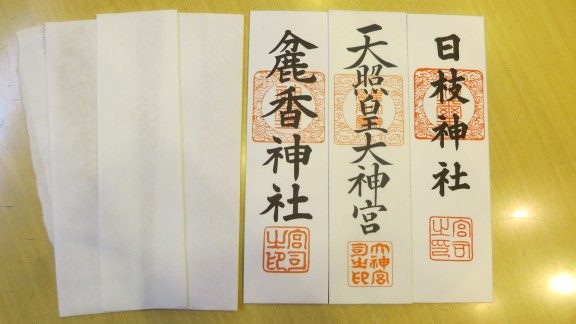 日枝神社
宮司之印
天照皇大神宮
大神宮司之印
麁香神社
宮司之印